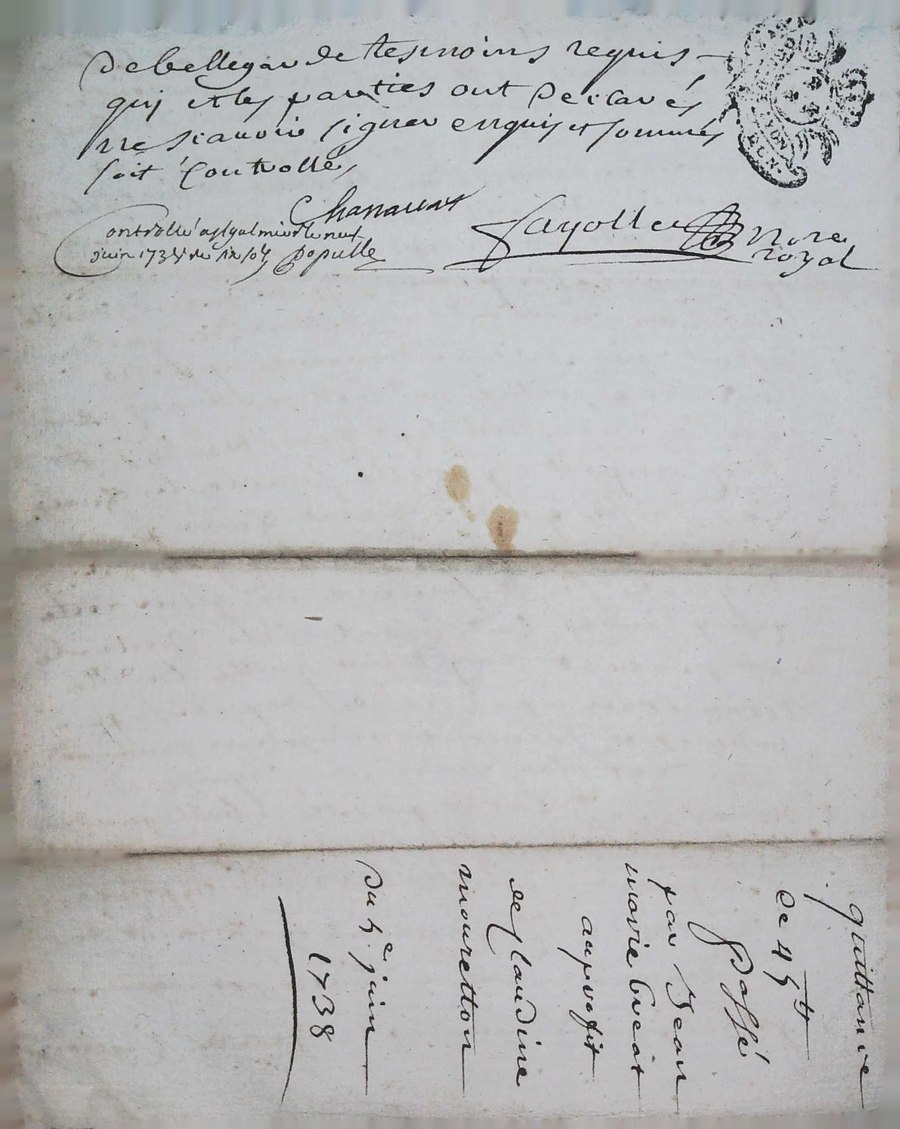 de bellegarde tesmoins requis
qui et les parties ont declarés
ne scavoir signer enquis et sommés
soit controllé,
Chanauat
Controllé a st galmier le neuf
juin 1738 Populle
Fayolle nore
royal
quittance
de 45 tt
passé
par Jean
marie
au profit
de claudine
mouretton
du 5e juin
1738